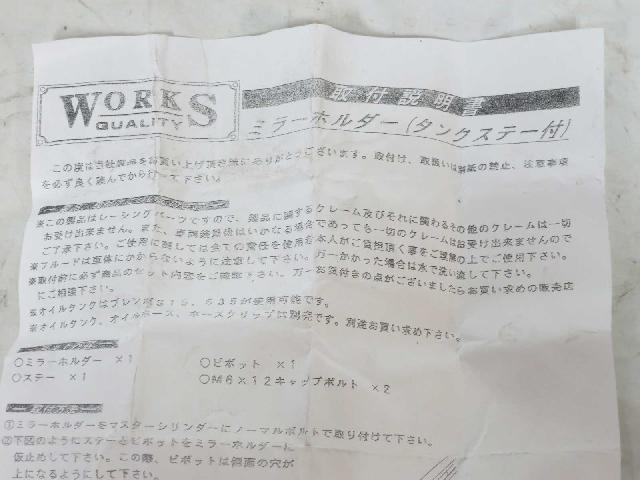 WORKS
QUALITY
取付説明書
ミラーホルダー(タンクステー付)
この度は当社製品をお買い上げ頂き誠にありがとうございます。取付け、取扱いは別紙の禁止、注意事項
を必ず良く読んでから行って下さい。
※この製品はレーシングパーツですので、部品に関するクレーム及びそれに関わるその他のクレームは一切
お受け出来ません。また、車両装着後はいかなる場合であっても一切のクレームはお受け出来ませんので
ご了承下さい。ご使用に際しては全ての責任を使用者本人がご負担頂く事をご理解の上でご使用下さい。
※フルードは直体にかからないように注意して下さい。万一かかった場合は水で洗い流して下さい。
※取付前に必ず商品のセット内容をご確認下さい。万一お気付きの点がございましたらお買い求めの販売店
にご相談下さい。
※オイルタンクはブレンボS15、S35が使用可能です。
※オイルタンク、オイルホース、ホースクリップは別売です。別途お買い求め下さい。
○ミラーホルダー ×1
○ピボット ×1
○ステー ×1
○M6×12キャップボルト ×2
取付方法
①ミラーホルダーをマスターシリンダーにノーマルボルトで取り付けて下さい。
②下図のようにステーとピボットをミラーホルダーに
仮止めして下さい。この際、ピボットは側面の穴が
上になるようにして下さい。